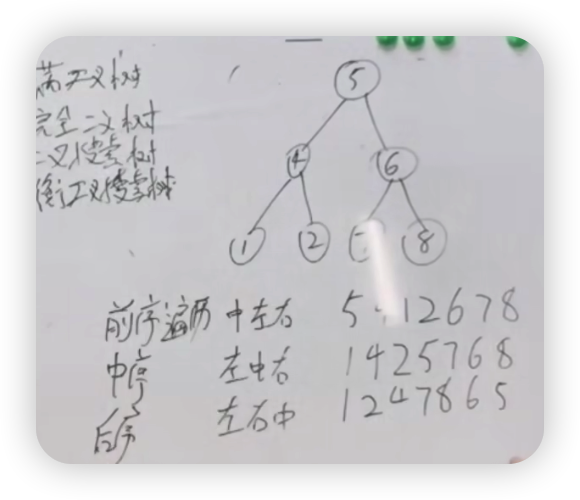 满二叉树
完全二叉树
二叉搜索树
衡二叉搜索树
5
4 6
1 2 8
前序遍历 中左右 5 12678
中序 左中右 1425768
后序 左右中 1247865